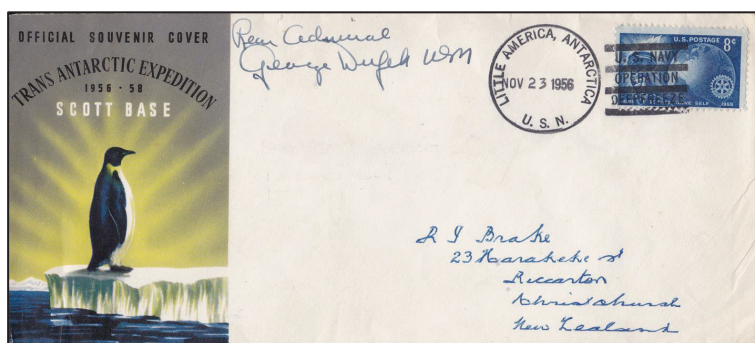 OFFICIAL SOUVENIR COVER
TRANS ANTARCTIC EXPEDITION
1956 - 58
SCOTT BASE
Rear Admiral
George Dufek USN
LITTLE AMERICA, ANTARCTICA
NOV 23 1956
U. S. N.
U.S. POSTAGE 8¢
U. S. NAVY
OPERATION
DEEPFREEZE
SERVICE ABOVE SELF 1955
R J Brake
23 Harakeke st
Riccarton
Christchurch
New Zealand